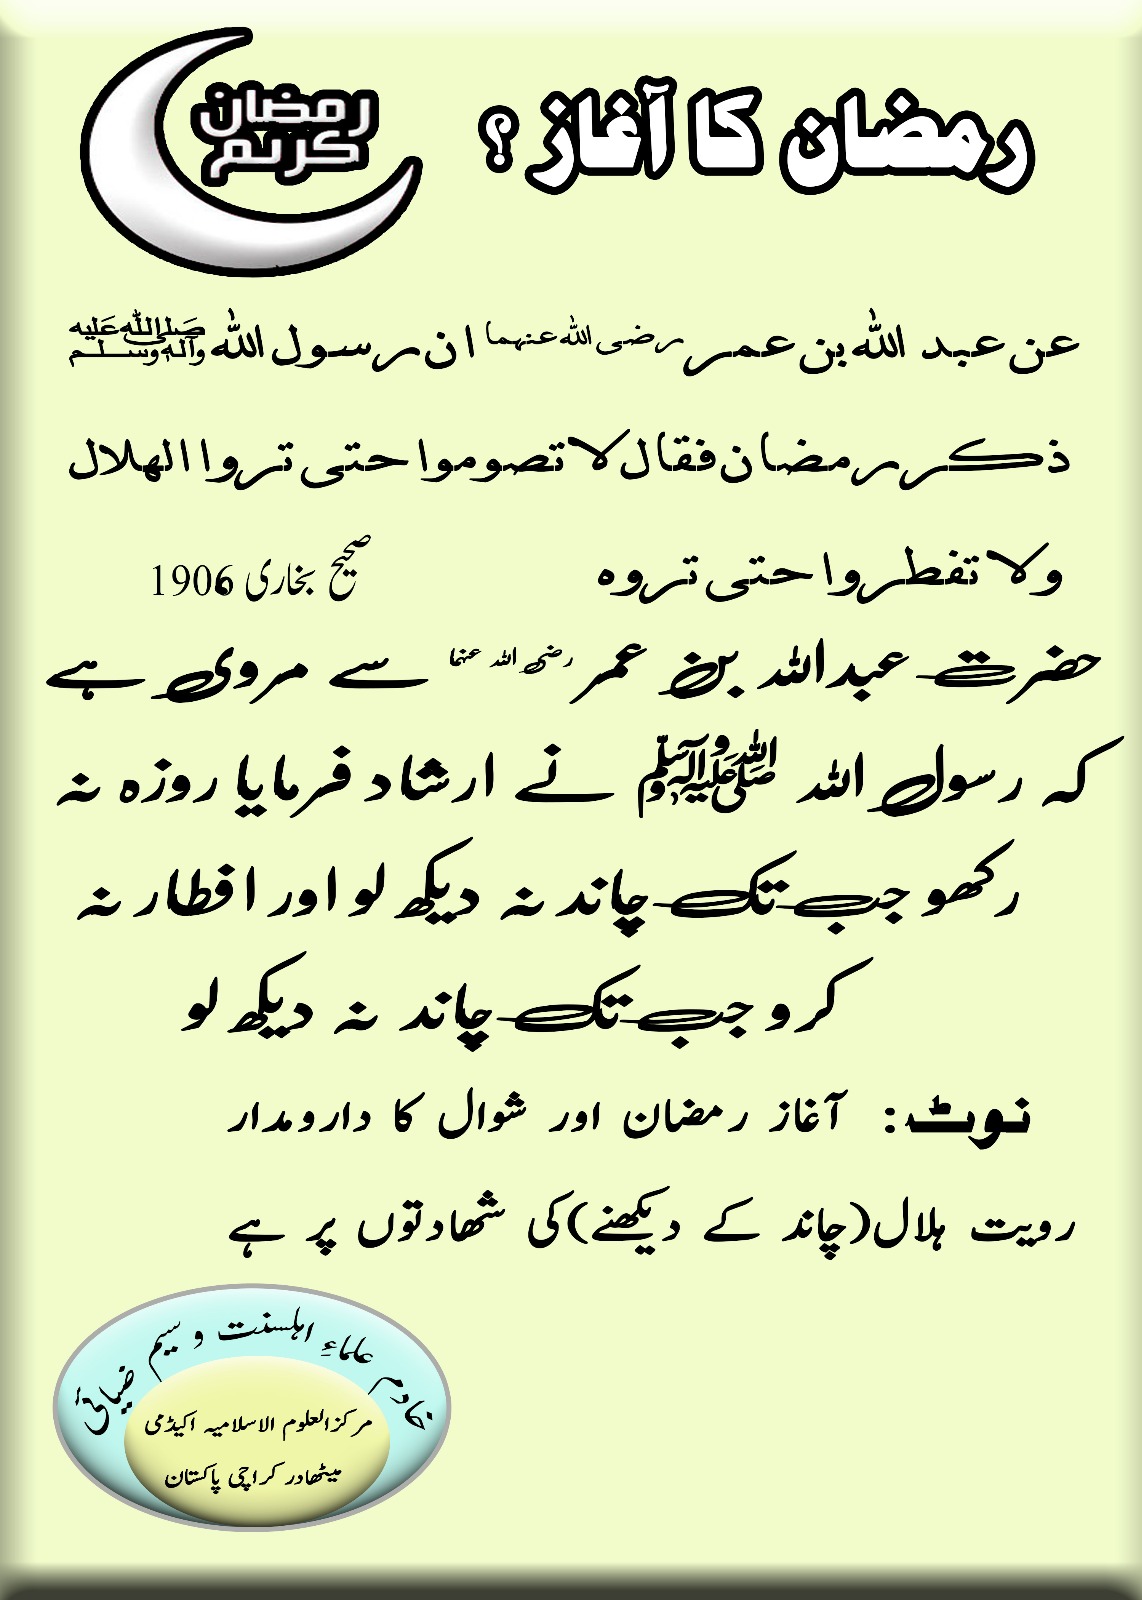 رمضان کا آغاز ؟
رمضان
كريم
عن عبد الله بن عمر رضی الله عنهما ان رسول الله صلی الله علیه وآله وسلم
ذکر رمضان فقال لا تصوموا حتی تروا الهلال
ولا تفطروا حتی تروه
صحیح بخاری 1906
حضرت عبداللہ بن عمر رضی اللہ عنہما سے مروی ہے
کہ رسول اللہ ﷺ نے ارشاد فرمایا روزہ نہ
رکھو جب تک چاند نہ دیکھ لو اور افطار نہ
کرو جب تک چاند نہ دیکھ لو
نوٹ: آغاز رمضان اور شوال کا دارومدار
رویت ہلال(چاند کے دیکھنے)کی شھادتوں پر ہے
خادم علماءِ اہلسنت وسیم ضیائی
مرکزالعلوم الاسلامیہ اکیڈمی
میٹھادر کراچی پاکستان